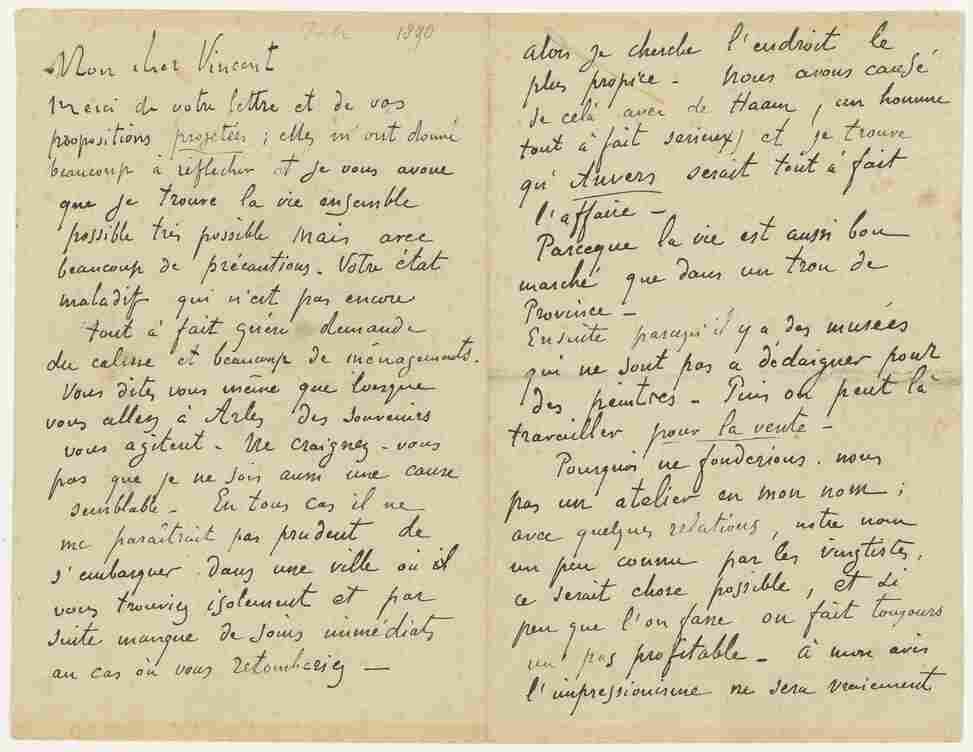 1890
Mon cher Vincent
Merci de votre lettre et de vos
propositions projetées ; elles m'ont donné
beaucoup à réflechir et je vous avoue
que je trouve la vie ensemble
possible très possible mais avec
beaucoup de précautions. Votre état
maladif qui n'est pas encore
tout à fait guéri demande
du calme et beaucoup de ménagements.
Vous dites vous même que lorsque
vous allez à Arles des souvenirs
vous agitent - Ne craignez-vous
pas que je ne sois aussi une cause
semblable - En tous cas il ne
me paraîtrait pas prudent de
s'embarquer dans une ville où il
vous trouviez isolement et par
suite manque de soins immédiats
au cas où vous retomberiez -
alors je cherche l'endroit le
plus propice - Nous avons causé
de celà avec de Haan, (un homme
tout à fait serieux) et je trouve
qu'Anvers serait tout à fait
l'affaire -
Parceque la vie est aussi bon
marché que dans un trou de
Province -
Ensuite parcequ'il y a des musées
qui ne sont pas a dédaigner pour
des peintres - Puis on peut là
travailler pour la vente -
Pourquoi ne fonderions-nous
pas un atelier en mon nom ;
avec quelques relations, notre nom
un peu connu par les vingtistes,
ce serait chose possible, et si
peu que l'on fasse on fait toujours
un pas profitable - à mon avis
l'impressionisme ne sera vraiment